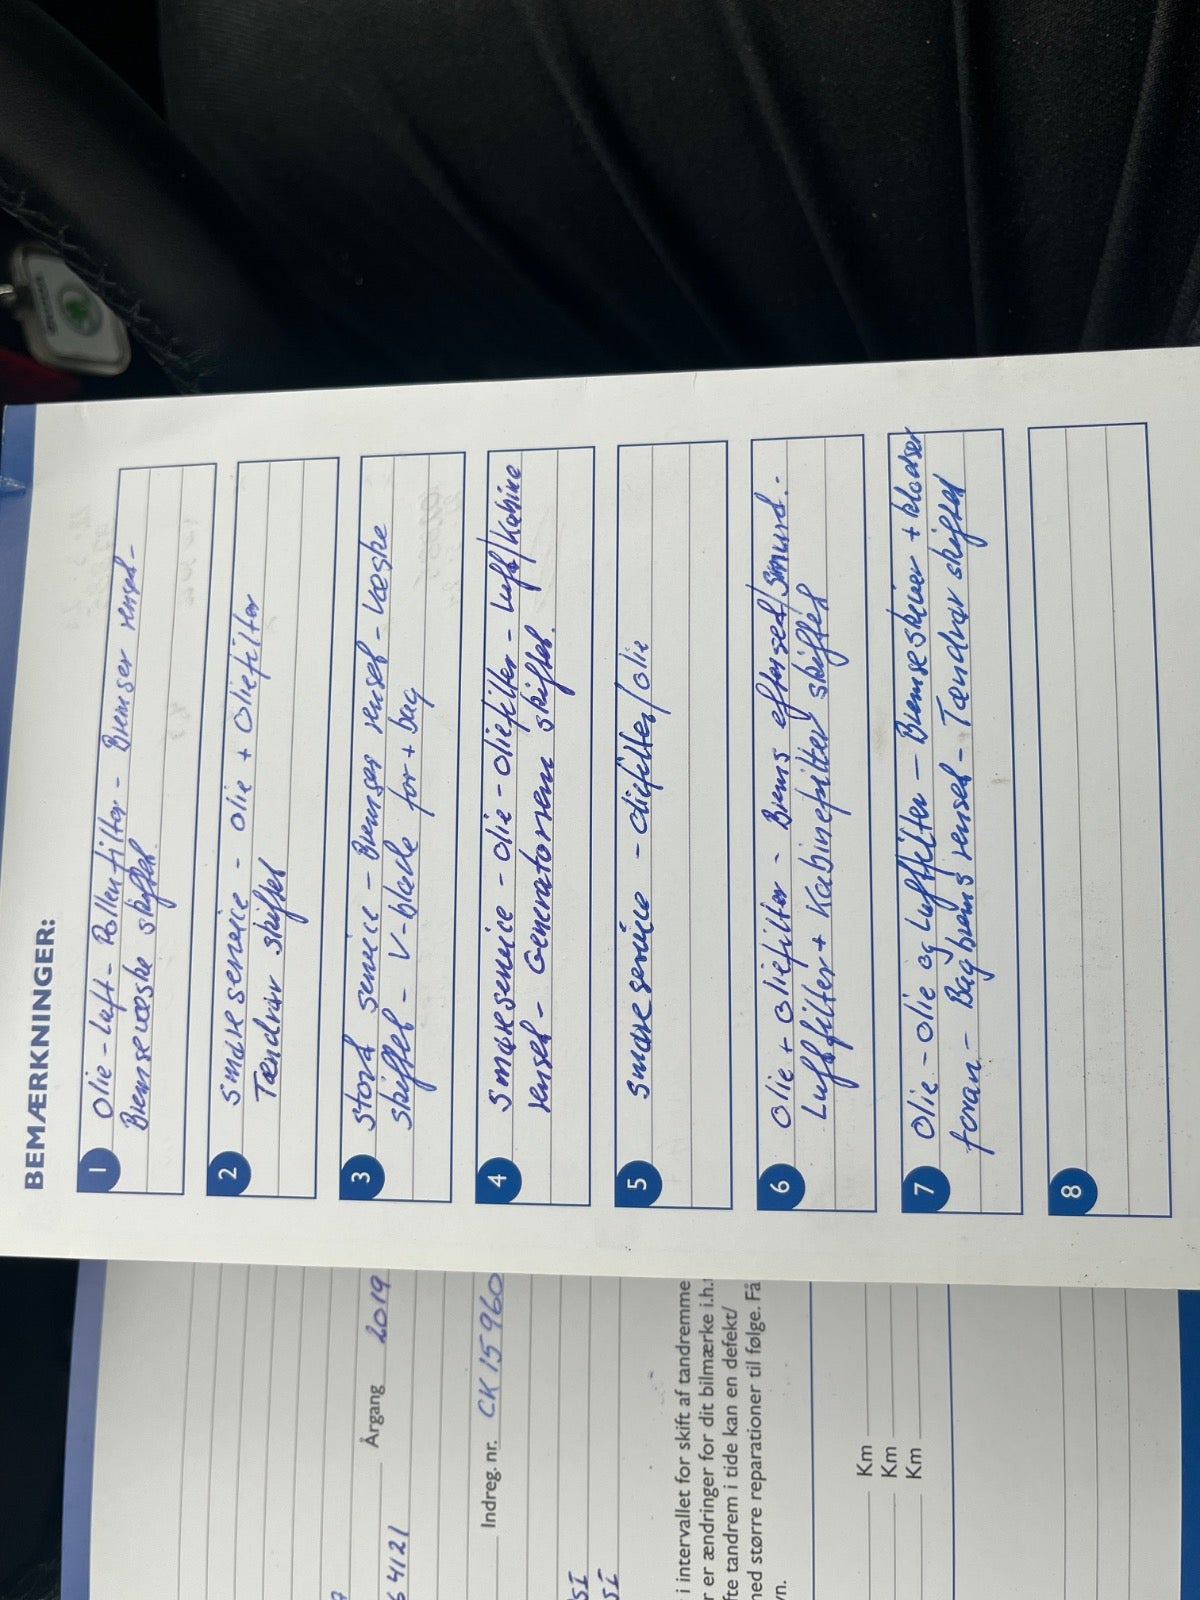 BEMÆRKNINGER:
1
Olie - Luft - Pollenfilter - Bremser renset -
Bremsevæske skiftet.
2
smøreservice - olie + oliefilter
Tændrør skiftet
3
stort service - Bremser renset - Væske
skiftet - V-blade for + bag
4
smøreservice - olie - oliefilter - Luft/Kabine
renset - Generatorrem skiftet.
5
smøreservice - oliefilter/olie
6
Olie + oliefilter - Brems efterset/smurd.-
Luftfilter + Kabinefilter skiftet
7
Olie - Olie og Luftfilter - Bremseskiver + klodser
foran - Bagbrems renset - Tændrør skiftet
8
Årgang 2019
64121
Indreg. nr. CK 15 960
SI
SI
i intervallet for skift af tandremme
r er ændringer for dit bilmærke i.h.
fte tandrem i tide kan en defekt/
ned større reparationer til følge. Få
vn.
Km
Km
Km